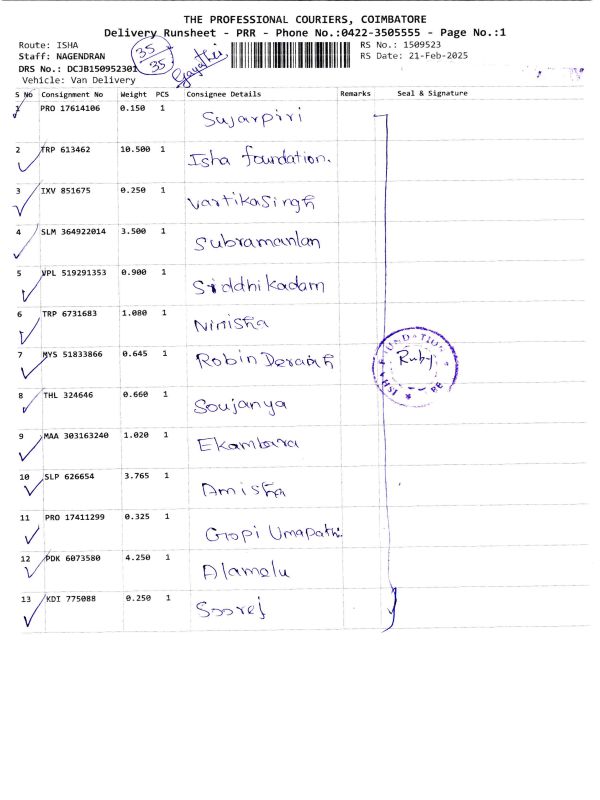 THE PROFESSIONAL COURIERS, COIMBATORE
Delivery Runsheet - PRR - Phone No.:0422-3505555 - Page No.:1
Route: ISHA
35/35
Gayathri
RS No.: 1509523
Staff: NAGENDRAN
RS Date: 21-Feb-2025
DRS No.: DCJB150952301
Vehicle: Van Delivery
S No Consignment No Weight PCS Consignee Details Remarks Seal & Signature
1 PRO 17614106 0.150 1 Sujarpiri
2 TRP 613462 10.500 1 Isha foundation.
3 IXV 851675 0.250 1 Vartikasingh
4 SLM 364922014 3.500 1 Subramanian
5 VPL 519291353 0.900 1 Siddhikadam
6 TRP 6731683 1.080 1 Nimisha
7 MYS 51833866 0.645 1 Robin
FOUNDATION
Ruby
8 THL 324646 0.660 1 Soujanya
9 MAA 303163240 1.020 1 Ekambara
10 SLP 626654 3.765 1 Amisha
11 PRO 17411299 0.325 1 Gopi Umapathi.
12 PDK 6073580 4.250 1 Alamelu
13 KDI 775088 0.250 1 Soorej